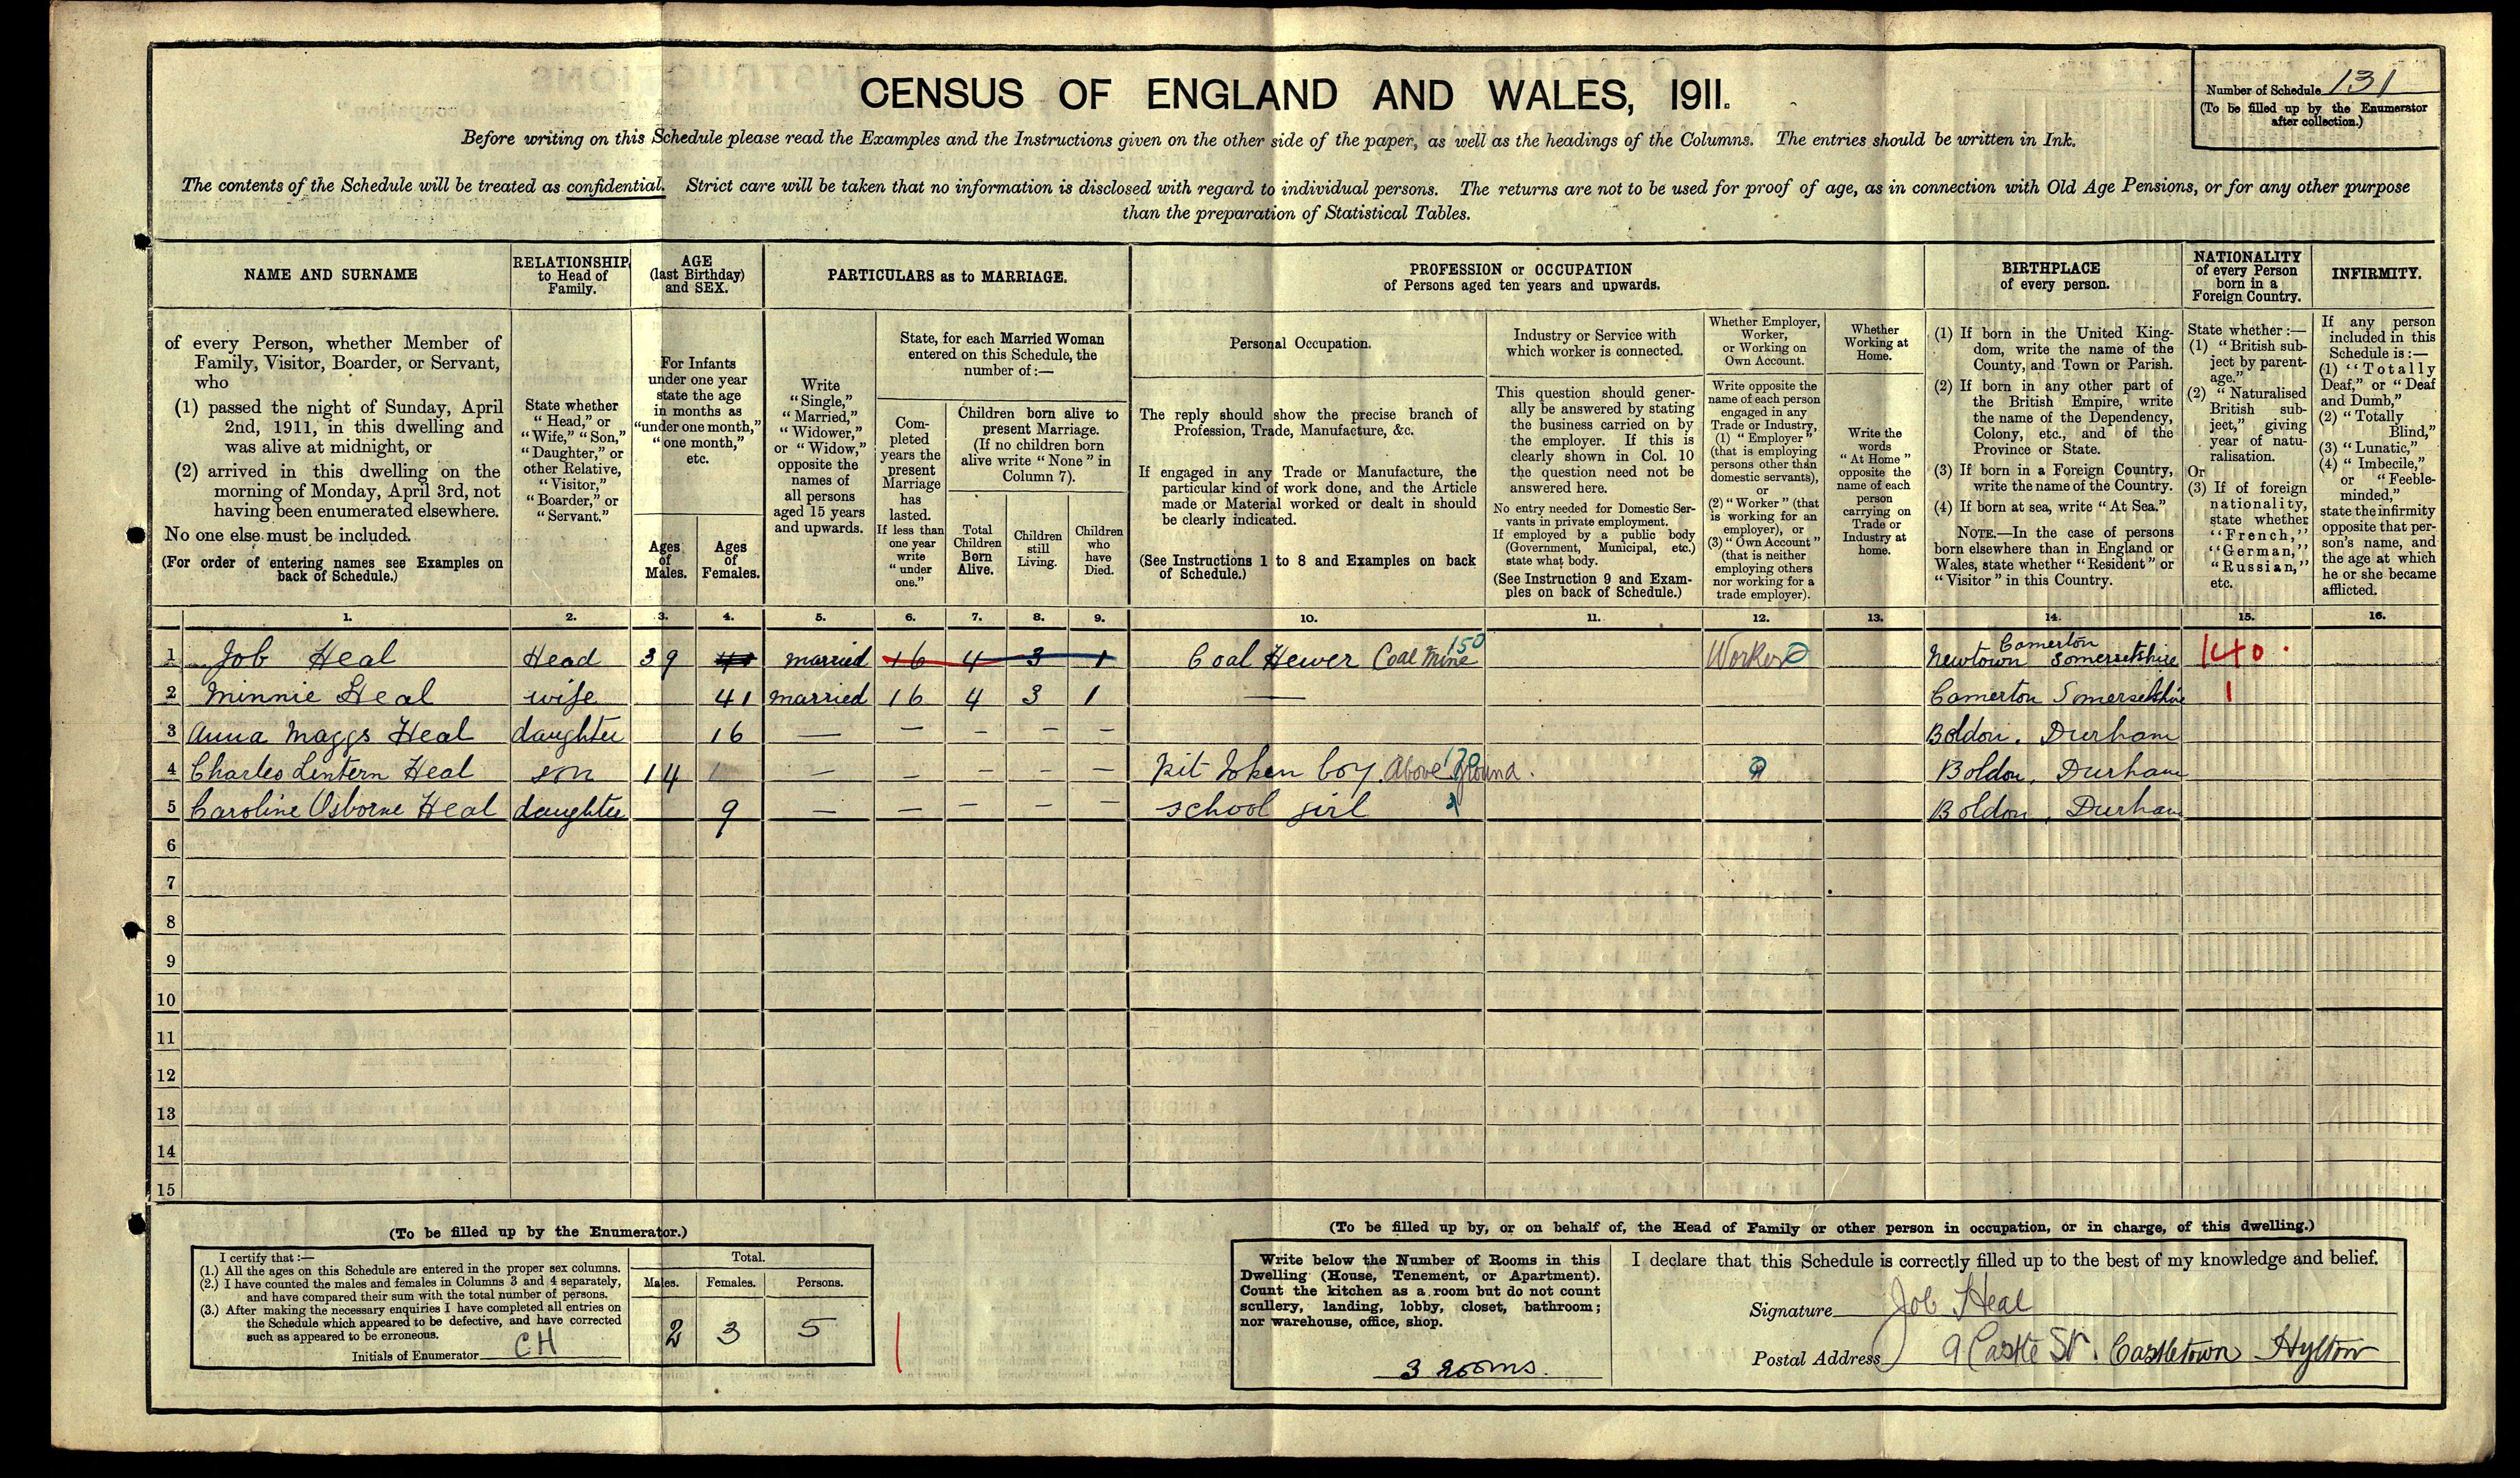 CENSUS OF ENGLAND AND WALES, 1911.
Number of Schedule 131
(To be filled up by the Enumerator
after collection.)
Before writing on this Schedule please read the Examples and the Instructions given on the other side of the paper, as well as the headings of the Columns. The entries should be written in Ink.
The contents of the Schedule will be treated as confidential. Strict care will be taken that no information is disclosed with regard to individual persons. The returns are not to be used for proof of age, as in connection with Old Age Pensions, or for any other purpose
than the preparation of Statistical Tables.
NAME AND SURNAME
of every Person, whether Member of
Family, Visitor, Boarder, or Servant,
who
(1) passed the night of Sunday, April
2nd, 1911, in this dwelling and
was alive at midnight, or
(2) arrived in this dwelling on the
morning of Monday, April 3rd, not
having been enumerated elsewhere.
No one else must be included.
(For order of entering names see Examples on
back of Schedule.)
RELATIONSHIP
to Head of
Family.
State whether
"Head," or
"Wife," "Son,"
"Daughter," or
other Relative,
"Visitor,"
"Boarder," or
"Servant."
AGE
(last Birthday)
and SEX.
For Infants
under one year
state the age
in months as
"under one month,"
"one month,"
etc.
Ages
of
Males.
Ages
of
Females.
PARTICULARS as to MARRIAGE.
Write
"Single,"
"Married,"
"Widower,"
or "Widow,"
opposite the
names of
all persons
aged 15 years
and upwards.
State, for each Married Woman
entered on this Schedule, the
number of:—
Com-
pleted
years the
present
Marriage
has
lasted.
If less than
one year
write
"under
one."
Children born alive to
present Marriage.
(If no children born
alive write "None" in
Column 7).
Total
Children
Born
Alive.
Children
still
Living.
Children
who
have
Died.
PROFESSION or OCCUPATION
of Persons aged ten years and upwards.
Personal Occupation.
The reply should show the precise branch of
Profession, Trade, Manufacture, &c.
If engaged in any Trade or Manufacture, the
particular kind of work done, and the Article
made or Material worked or dealt in should
be clearly indicated.
(See Instructions 1 to 8 and Examples on back
of Schedule.)
Industry or Service with
which worker is connected.
This question should gener-
ally be answered by stating
the business carried on by
the employer. If this is
clearly shown in Col. 10
the question need not be
answered here.
No entry needed for Domestic Ser-
vants in private employment.
If employed by a public body
(Government, Municipal, etc.)
state what body.
(See Instruction 9 and Exam-
ples on back of Schedule.)
Whether Employer,
Worker,
or Working on
Own Account.
Write opposite the
name of each person
engaged in any
Trade or Industry,
(1) "Employer"
(that is employing
persons other than
domestic servants),
or
(2) "Worker" (that
is working for an
employer), or
(3) "Own Account"
(that is neither
employing others
nor working for a
trade employer).
Whether
Working at
Home.
Write the
words
"At Home"
opposite the
name of each
person
carrying on
Trade or
Industry at
home.
BIRTHPLACE
of every person.
(1) If born in the United King-
dom, write the name of the
County, and Town or Parish.
(2) If born in any other part of
the British Empire, write
the name of the Dependency,
Colony, etc., and of the
Province or State.
(3) If born in a Foreign Country,
write the name of the Country.
(4) If born at sea, write "At Sea."
NOTE.—In the case of persons
born elsewhere than in England or
Wales, state whether "Resident" or
"Visitor" in this Country.
NATIONALITY
of every Person
born in a
Foreign Country.
State whether:—
(1) "British sub-
ject by parent-
age."
(2) "Naturalised
British sub-
ject," giving
year of natu-
ralisation.
Or
(3) If of foreign
nationality,
state whether
"French,"
"German,"
"Russian,"
etc.
INFIRMITY.
If any person
included in this
Schedule is:—
(1) "Totally
Deaf," or "Deaf
and Dumb,"
(2) "Totally
Blind,"
(3) "Lunatic,"
(4) "Imbecile,"
or "Feeble-
minded,"
state the infirmity
opposite that per-
son's name, and
the age at which
he or she became
afflicted.
1. 2. 3. 4. 5. 6. 7. 8. 9. 10. 11. 12. 13. 14. 15. 16.
1 Job Heal Head 39 41 married 16 4 3 1 Coal Hewer Coal Mine 150 Worker Newtown Camerton Somersetshire 140
2 Minnie Heal wife 41 married 16 4 3 1 — Camerton Somersetshire 1
3 Anna Maggs Heal daughter 16 — — — — — Boldon, Durham
4 Charles Lintern Heal son 14 — — — — — Pit token boy. Above ground. Boldon, Durham
5 Caroline Osborne Heal daughter 9 — — — — — school girl Boldon, Durham
6
7
8
9
10
11
12
13
14
15
(To be filled up by the Enumerator.)
I certify that:—
(1.) All the ages on this Schedule are entered in the proper sex columns.
(2.) I have counted the males and females in Columns 3 and 4 separately,
and have compared their sum with the total number of persons.
(3.) After making the necessary enquiries I have completed all entries on
the Schedule which appeared to be defective, and have corrected
such as appeared to be erroneous.
Initials of Enumerator CH
Total.
Males. Females. Persons.
2 3 5
(To be filled up by, or on behalf of, the Head of Family or other person in occupation, or in charge, of this dwelling.)
Write below the Number of Rooms in this
Dwelling (House, Tenement, or Apartment).
Count the kitchen as a room but do not count
scullery, landing, lobby, closet, bathroom;
nor warehouse, office, shop.
3 rooms.
I declare that this Schedule is correctly filled up to the best of my knowledge and belief.
Signature Job Heal
Postal Address 9 Castle St. Castletown Hylton